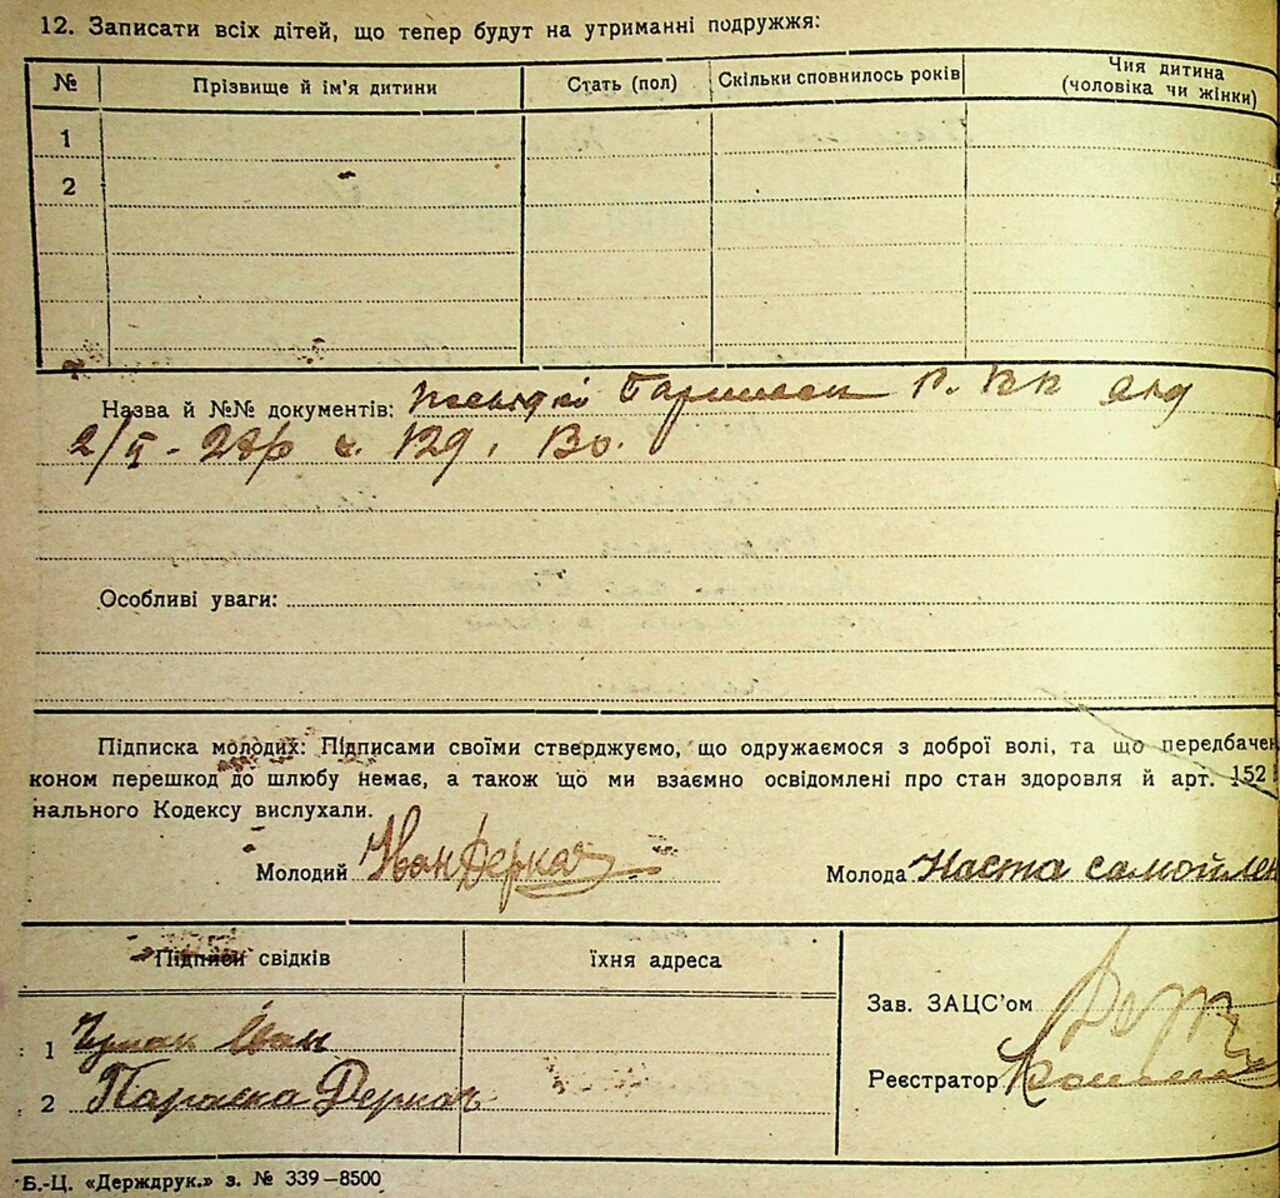 12. Записати всіх дітей, що тепер будут на утриманні подружжя:
№ Прізвище й ім'я дитини Стать (пол) Скільки сповнилось років Чия дитина
(чоловіка чи жінки)
1
2
Назва й №№ документів:
2/II - 28р
Особливі уваги:
Підписка молодих: Підписами своїми стверджуємо, що одружаємося з доброї волі, та що передбачен
коном перешкод до шлюбу немає, а також що ми взаємно освідомлені про стан здоровля й арт. 152
нального Кодексу вислухали.
Молодий Иван Деркач Молода Наста самойлен
Підписи свідків їхня адреса
Зав. ЗАЦС'ом
1 Чумак Іван
Реєстратор
2 Параска Деркач
Б.-Ц. «Держдрук.» з. № 339—8500